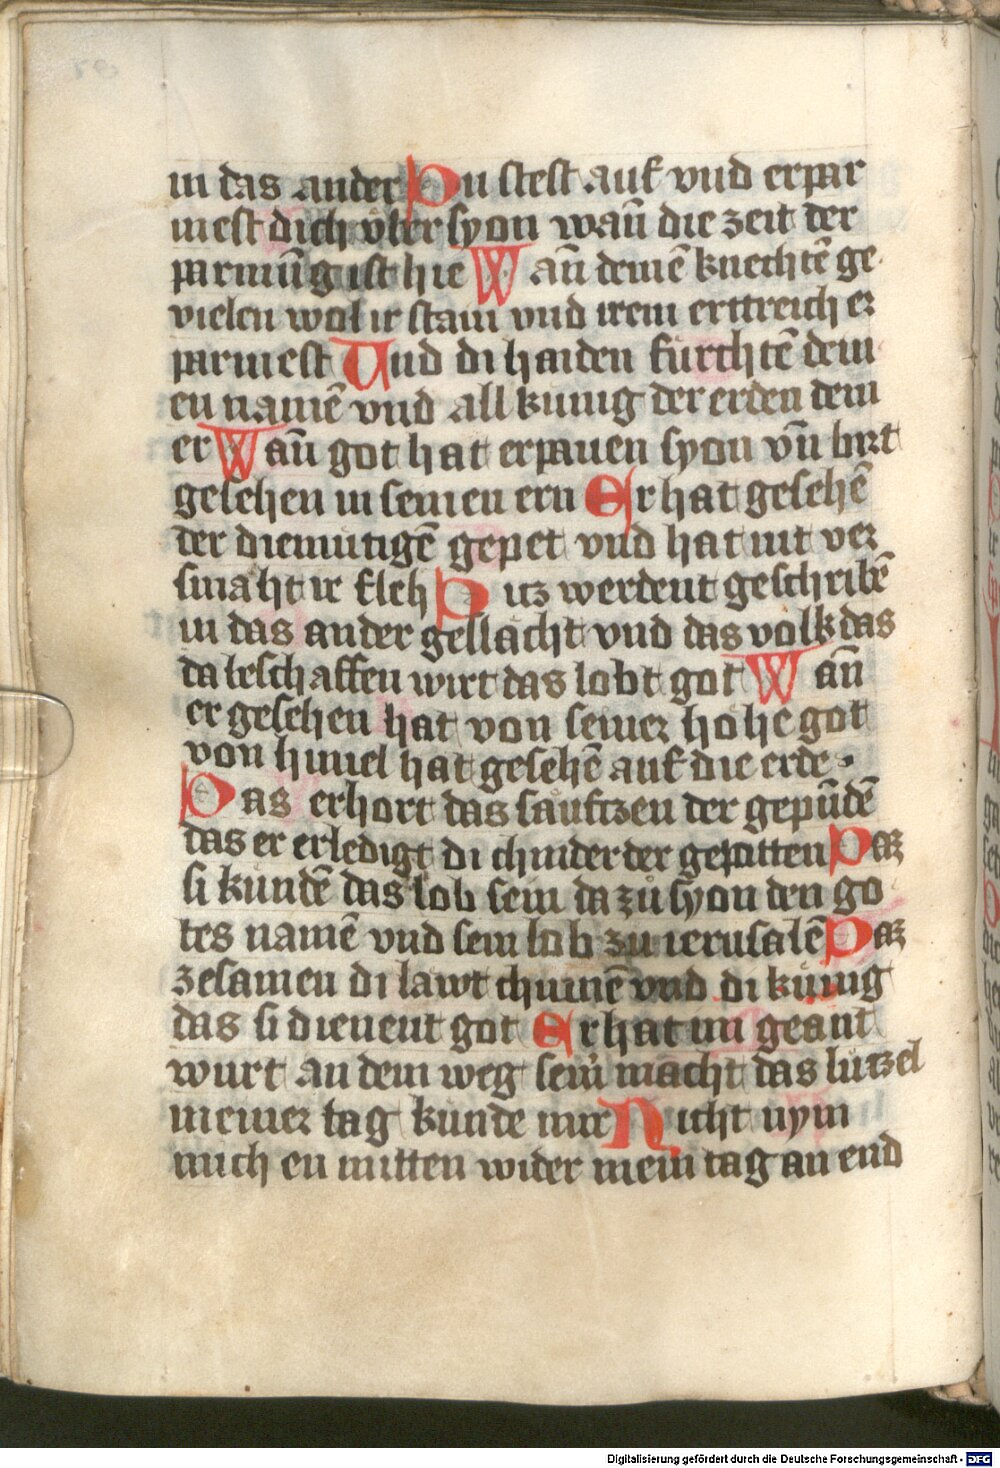 in das ander Du stest auf vnd erpar
mest dich vber syon wan̄ die zeit der
parmūg ist hie Wan̄ deinē knechtē ge
vielen wol ir stain vnd irem erttreich er
parmest Und di haiden furchtē dein
en namē vnd all kunig der erden dein
er Wan̄ got hat erpauen syon vn̄ birt
gesehen in seinen ern Er hat gesehē
der diemutigē gepet vnd hat nit ver
smaht ir fleh Ditz werdent geschribē
in das ander gesl̈acht vnd das volk das
da beschaffen wirt das lobt got Wan̄
er gesehen hat von seiner hohe got
von himel hat gesehē auf die erde
Das erhort das saufftzen der gepūdē
das er erledigt di chinder der getötten Daz
si kundē das lob sein da zů syon den go
tes namē vnd sein lob zu ierusalē Daz
zesamen di lawt chumē vnd di kůnig
das si dienent got Er hat im geant
wurt an dem weg seiner macht das lutzel
meiner tag kunde mir Nicht nym
mich en mitten wider mein tag an end
Digitalisierung gefördert durch die Deutsche Forschungsgemeinschaft - DFG